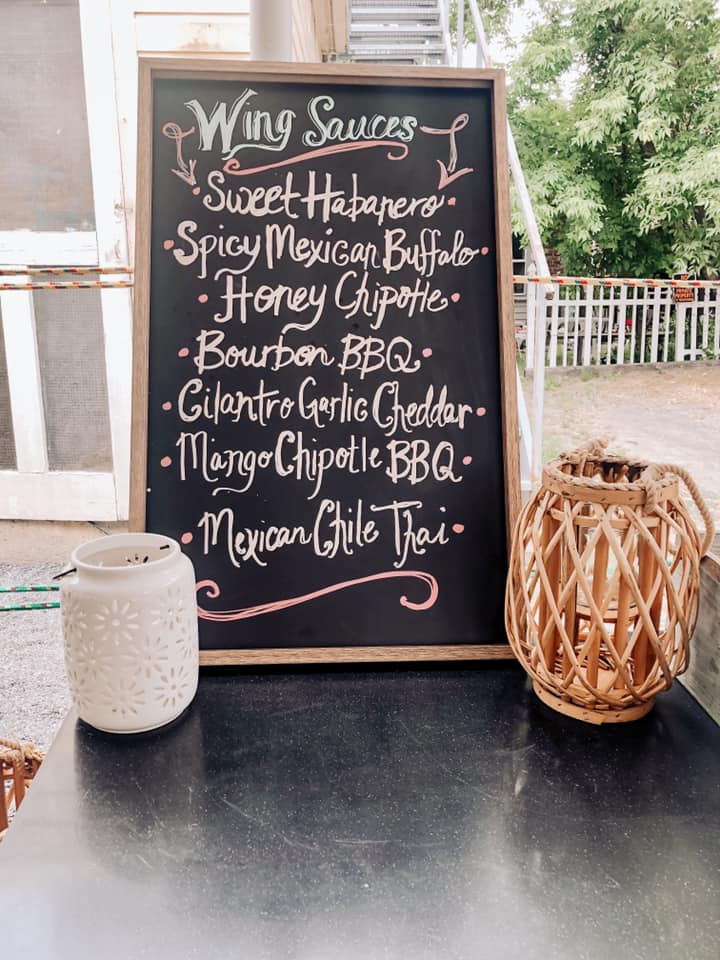 Wing Sauces
Sweet Habanero
Spicy Mexican Buffalo
Honey Chipotle
Bourbon BBQ
Cilantro Garlic Cheddar
Mango Chipotle BBQ
Mexican Chile Thai